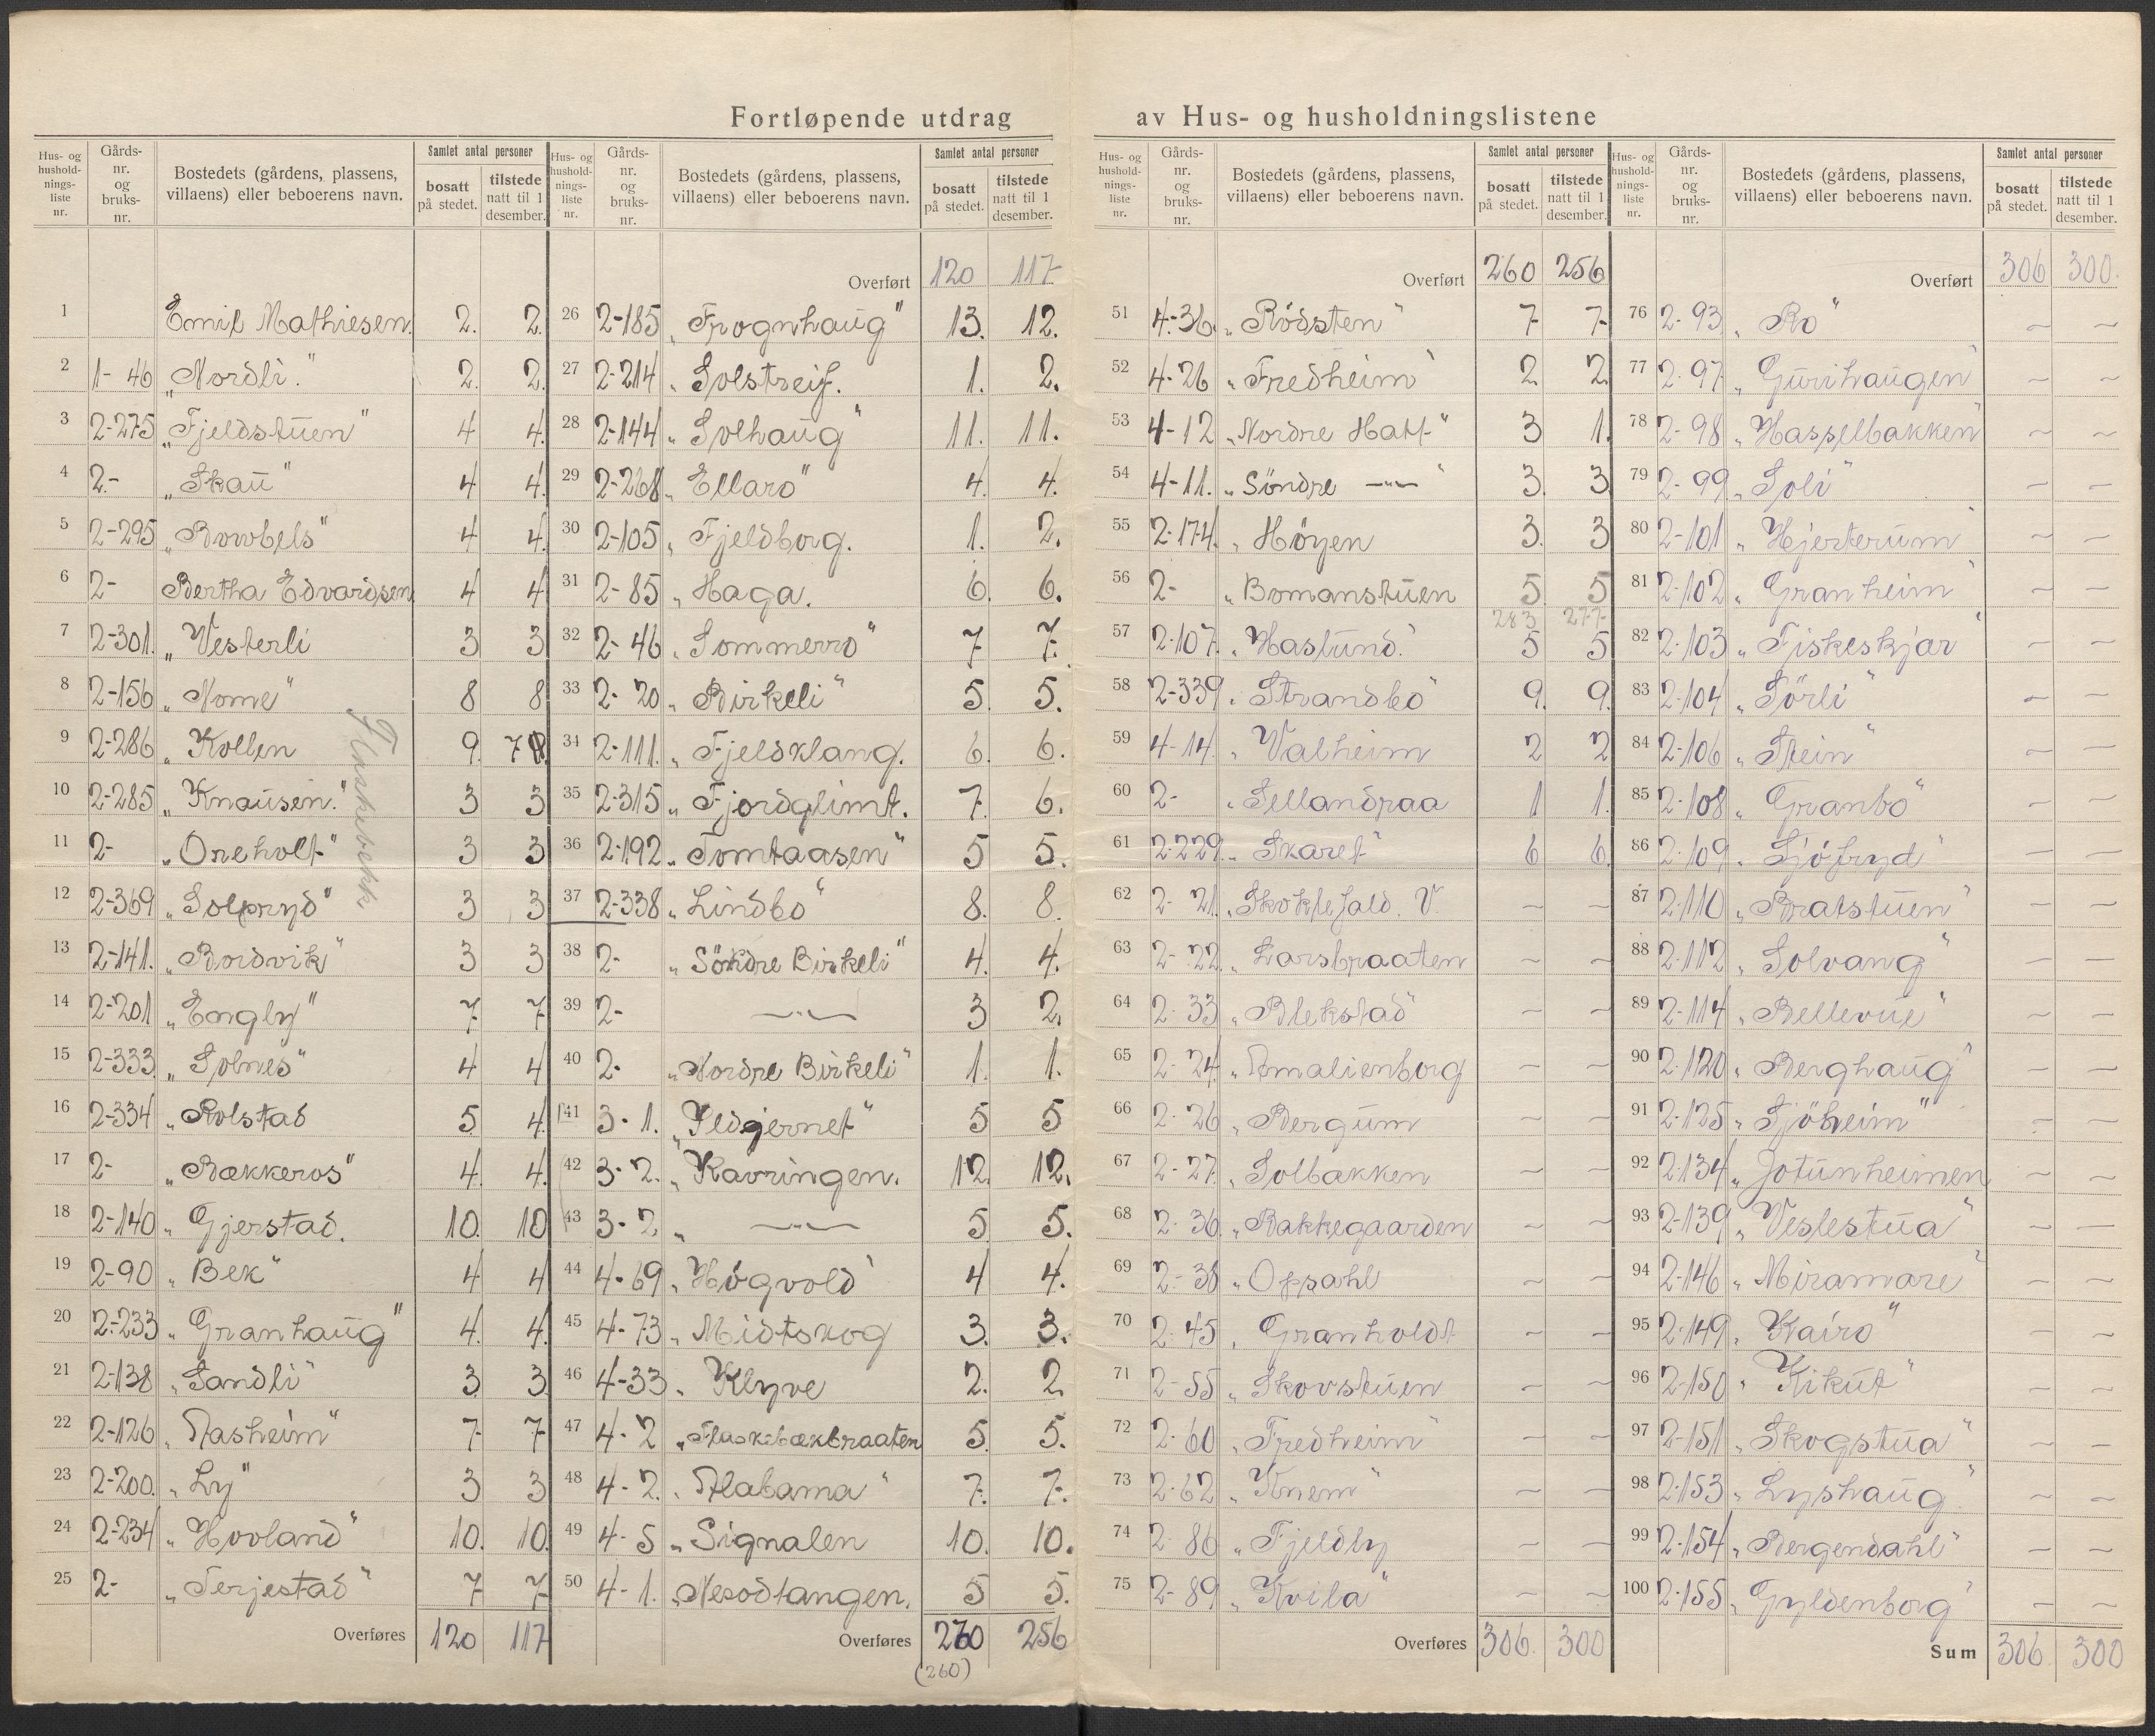 Fortløpende utdrag av Hus- og husholdningslistene
Hus- og hushold-nings-liste nr. Gårds-nr. og bruks-nr. Bostedets (gårdens, plassens, villaens) eller beboerens navn. Samlet antal personer bosatt på stedet. tilstede natt til 1 desember.
1 Emil Mathiesen. 2. 2.
2 1- 46 „Nordli." 2. 2.
3 2-275 „Fjeldstuen" 4 4.
4 2.- „Skau" 4 4.
5 2-295 4 4.
6 2- Bertha Edvardsen 4 4
7 2-301. „Vesterli 3 3
8 2-156 „Nome" 8 8
9 2-286 „Kollen 9.
10 2-285 „Knausen." 3 3
11 2- „Oreholt" 3 3
12 2-369 „Solfryd" 3 3
13 2-141. „Bordvik" 3 3
14 2-201 „Engly" 7 7
15 2-333 „Solnes" 4 4
16 2-334 „Rolstad 5. 4.
17 2- „Bækkeros" 4. 4.
18 2-140 „Gjerstad. 10. 10
19 2-90 „Bek" 4 4
20 2-233 „Granhaug" 4. 4.
21 2-138 „Sandli" 3 3
22 2-126 „Aasheim" 7 7
23 2-200. „Ly" 3 3
24 2-234 „Hovland" 10. 10.
25 2- „Terjestad" 7 7
Overføres 120 117
Flaskebekk
Hus- og hushold-nings-liste nr. Gårds-nr. og bruks-nr. Bostedets (gårdens, plassens, villaens) eller beboerens navn. Samlet antal personer bosatt på stedet. tilstede natt til 1 desember.
Overført 120 117
26 2-185 „Frognhaug" 13. 12.
27 2-214 „Solstreif. 1. 2.
28 2-144 „Solhaug" 11. 11.
29 2-268 „Ellaro" 4. 4.
30 2-105 „Fjeldborg. 1. 2.
31 2-85 „Haga. 6. 6.
32 2- 46 „Sommerro" 7 7.
33 2- 20 „Birkeli" 5. 5.
34 2-111. „Fjeldklang. 6. 6.
35 2-315 „Fjordglimt. 7. 6.
36 2-192 „Tomtaasen" 5 5.
37 2-338 „Lindbo" 8. 8.
38 2- „Söndre Birkeli" 4. 4.
39 2- —"— 3 2.
40 2- „Nordre Birkeli" 1. 1.
41 3-1. „Ildjernet" 5 5
42 3-2. „Kavringen. 12. 12.
43 3-2 „ —"— 5. 5.
44 4-69 „Högvold" 4 4.
45 4-73 „Midtskog 3. 3.
46 4-33 „Klyve 2. 2
47 4-2 „Flaskebækbraaten 5. 5.
48 4-2. „Alabama" 7. 7.
49 4-5 „Signalen 10. 10.
50 4-1. „Nesodtangen. 5 5.
Overføres 260 256
(260)
Hus- og hushold-nings-liste nr. Gårds-nr. og bruks-nr. Bostedets (gårdens, plassens, villaens) eller beboerens navn. Samlet antal personer bosatt på stedet. tilstede natt til 1 desember.
Overført 260 256
51 4-36. „Rödsten" 7 7
52 4-26 „Fredheim" 2 2
53 4-12 „Nordre Hatt" 3 1.
54 4-11. „Söndre —"— 3. 3
55 2-174. „Höyen 3. 3
56 2- „Bomanstuen 5 5
283 277
57 2-107. „Haslund." 5 5
58 2-339 „Strandbo" 9. 9.
59 4-14 „Valheim 2 2
60 2- „Sellandraa 1 1.
61 2-229 „Skaret" 6 6.
62 2- 21. „Skoklefald. V. – –
63 2- 22 „Larsbraaten – –
64 2- 33 „Blekstad" – –
65 2- 24 „Amalienborg – –
66 2- 26 „Bergum – –
67 2- 27 „Solbakken – –
68 2- 36 „Bakkegaarden – –
69 2- 38 „Opsahl – –
70 2- 45 „Granholdt – –
71 2- 55 „Skovstuen – –
72 2- 60 „Fredheim" – –
73 2- 62 „Knem" – –
74 2- 86 „Fjeldly – –
75 2- 89 „Kvila" – –
Overføres 306. 300
Hus- og hushold-nings-liste nr. Gårds-nr. og bruks-nr. Bostedets (gårdens, plassens, villaens) eller beboerens navn. Samlet antal personer bosatt på stedet. tilstede natt til 1 desember.
Overført 306 300.
76 2- 93 „Ro" – –
77 2- 97 „Gurihaugen" – –
78 2- 98 „Hasselbakken" – –
79 2- 99 „Soli" – –
80 2-101 „Hjerterum" – –
81 2-102 „Granheim" – –
82 2-103 „Fiskeskjær" – –
83 2-104 „Sörli" – –
84 2-106 „Stein" – –
85 2-108 „Granbo" – –
86 2-109 „Sjöfryd" – –
87 2-110 „Bratstuen" – –
88 2-112 „Solvang" – –
89 2-114 „Bellevue" – –
90 2-120 „Berghaug" – –
91 2-125 „Sjöheim" – –
92 2-134 „Jotunheimen – –
93 2-139 „Veslestua" – –
94 2-146 „Miramare" – –
95 2-149 „Kairo" – –
96 2-150 „Kikut" – –
97 2-151 „Skogstua" – –
98 2-153 „Lyshaug" – –
99 2-154 „Bergendahl" – –
100 2-155 „Gyldenborg" – –
Sum 306 300